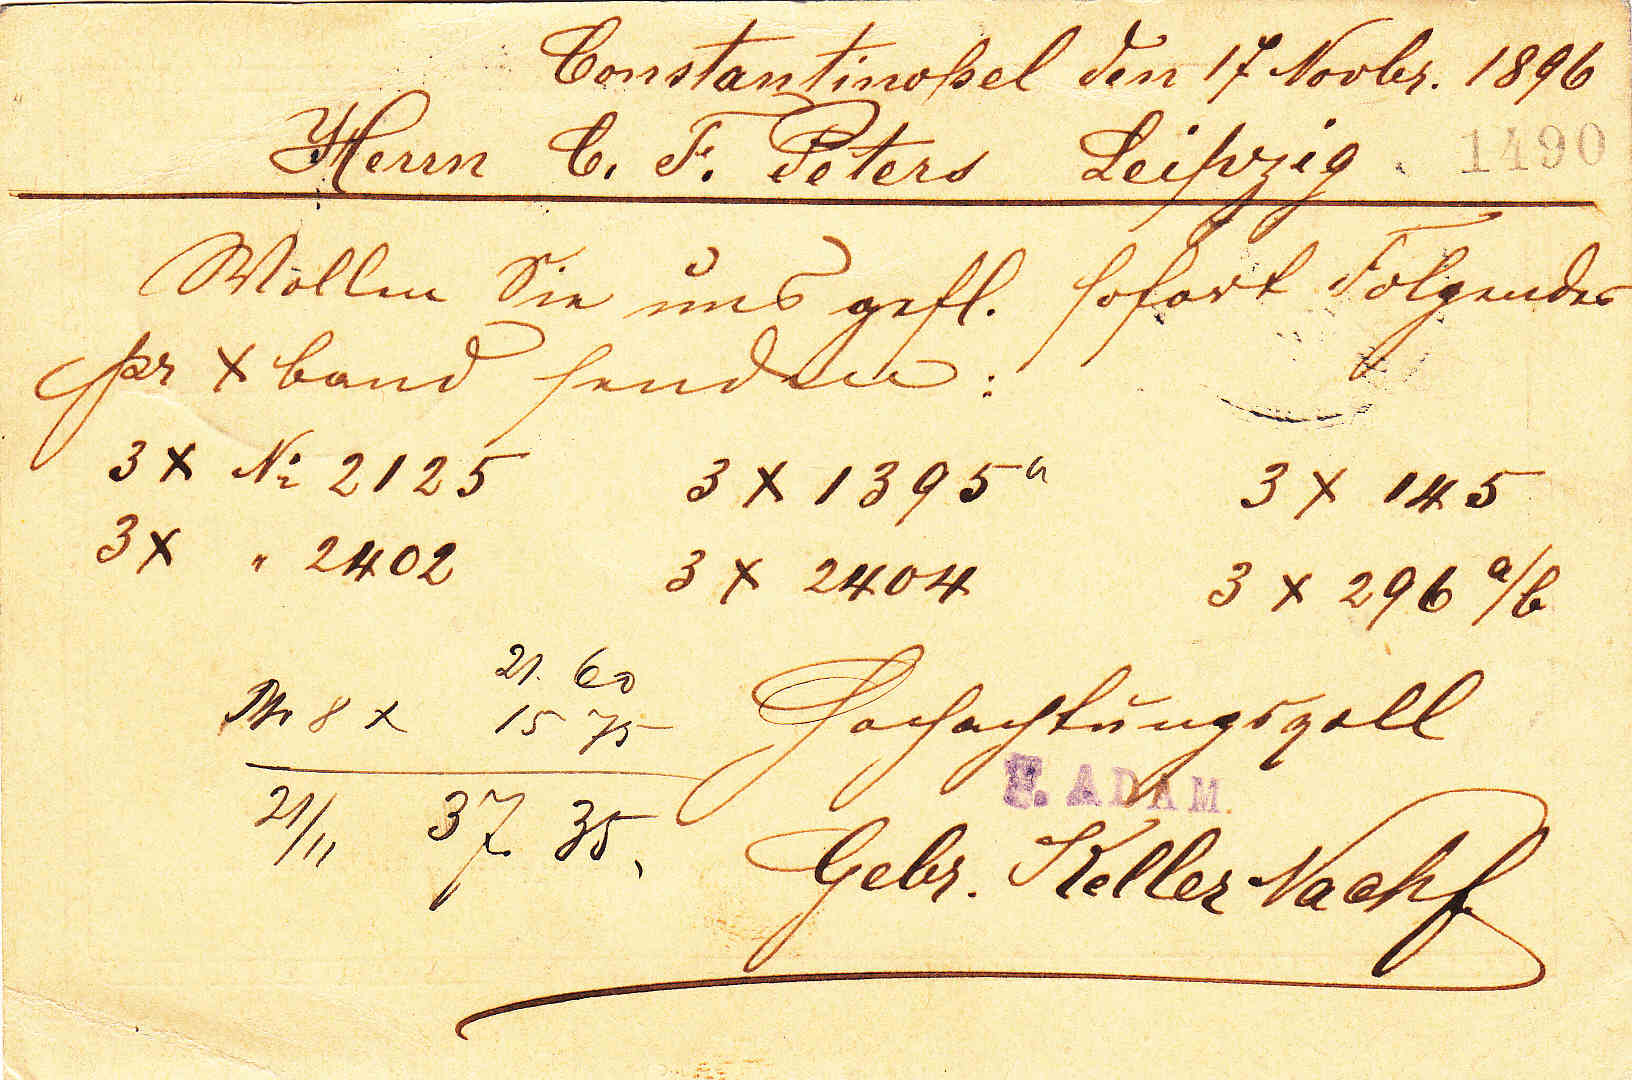 Constantinopel den 17 Novbr. 1896
Herrn C. F. Peters Leipzig
1490
Wollen Sie uns gefl. sofort Folgendes
pr X band senden :
3 X No 2125 3 X 1395a 3 X 145
3 X " 2402 3 X 2404 3 X 296 a/b
21. 60
8 x 15 75
21/11 37. 35,
Hochachtungsvoll
F. ADAM.
Gebr. Keller Nachf.